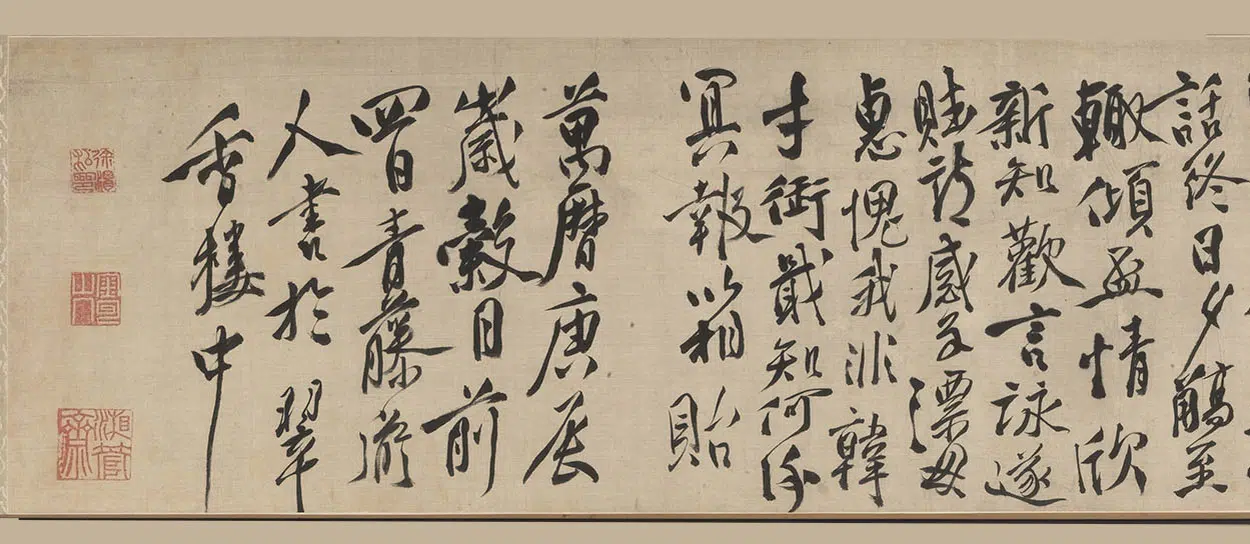 話終日夕觴至
輒傾盃情欣
新知歡言詠遂
賦詩感子漂母
惠愧我非韓
才銜戢知何謝
冥報以相貽
萬曆庚辰
歲穀日前
四日青藤道
人書於翠
香樓中
徐渭私印
湘管齋